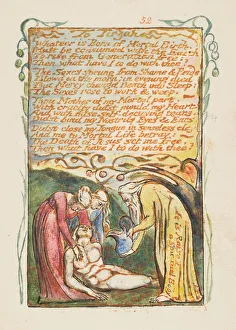 52
To Tirzah
Whate'er is Born of Mortal Birth,
Must be consumed with the Earth
To rise from Generation free;
Then what have I to do with thee?
The Sexes sprung from Shame & Pride
Blow'd in the morn: in evening died
But Mercy changd Death into Sleep;
The Sexes rose to work & weep.
Thou Mother of my Mortal part.
With cruelty didst mould my Heart.
And with false self-decieving tears,
Didst bind my Nostrils Eyes & Ears.
Didst close my Tongue in senseless clay
And me to Mortal Life betray:
The Death of Jesus set me free,
Then what have I to do with thee?
It is Raised
a Spiritual Body